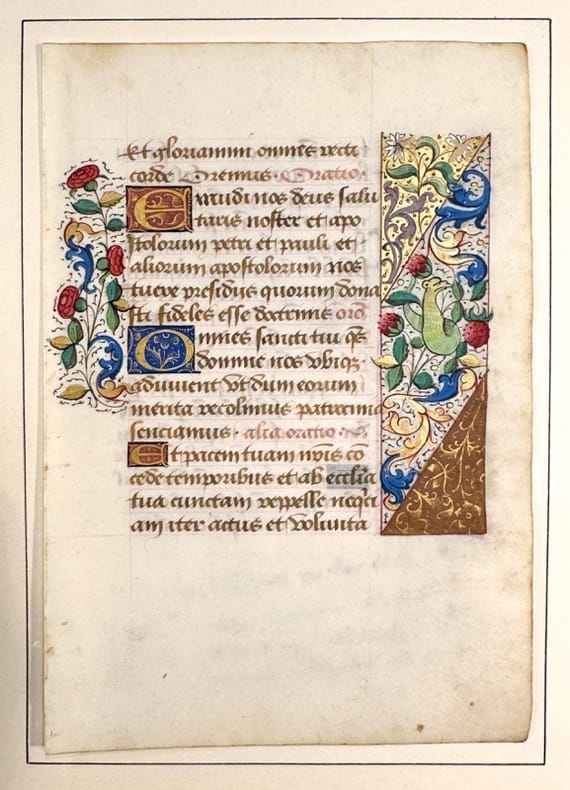 Et gloriamini omnes recti
corde Oremus. Oratio
Exaudi nos deus salu
taris noster et apo
stolorum petri et pauli et
aliorum apostolorum nos
tuere presidiis quorum dona
sti fideles esse doctrinis oro
Omnes sancti tui qs
domine nos vbiqz
adiuuent vt dum eorum
merita recolimus patrocinia
senciamus. alia oratio
Et pacem tuam nris co
cede temporibus et ab ecclia
tua cunctam reppelle neqci
am iter actus et volunta